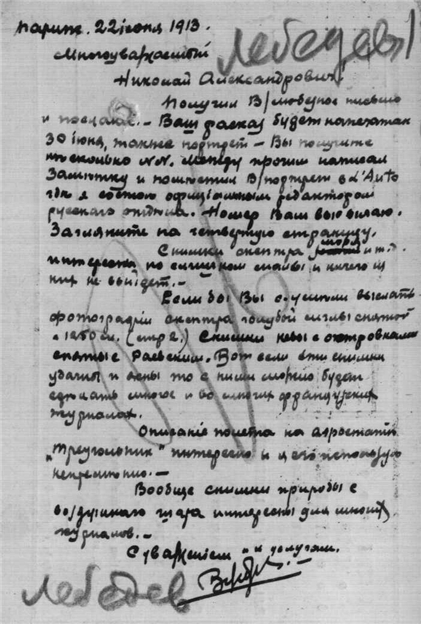 Париж. 22 июня 1913.
Лебедевъ
Многоуважаемый
Николай Александрович.
Получил В/любезное письмо
и послание. — Ваш разсказ будет напечатан
30 июня, также портрет — Вы получите
несколько NN. Между прочим написал
Заметку и поместил В/портрет в L'Auto
где я состою официальным редактором
русского отдела. Номер Вам высылаю.
Загляните на четвертую страницу.
Снимки спектра и т.д.
интересны но слишком слабы и ничего из
них не выйдет. —
Если бы Вы могли выслать
фотографии спектра голубой снятой
с 1250 м. (стр 2.) Снимки Невы с островками
снятые с Раевским. Вот если эти снимки
удачны и ясны то с ними можно будет
сделать многое и во многих французских
журналах.
Описание полета на аэростате
"Треугольник" интересно и я его использую
непременно. —
Вообще снимки природы с
воздушного шара интересны для многих
журналов. —
С уважением и услугам.
Лебедев